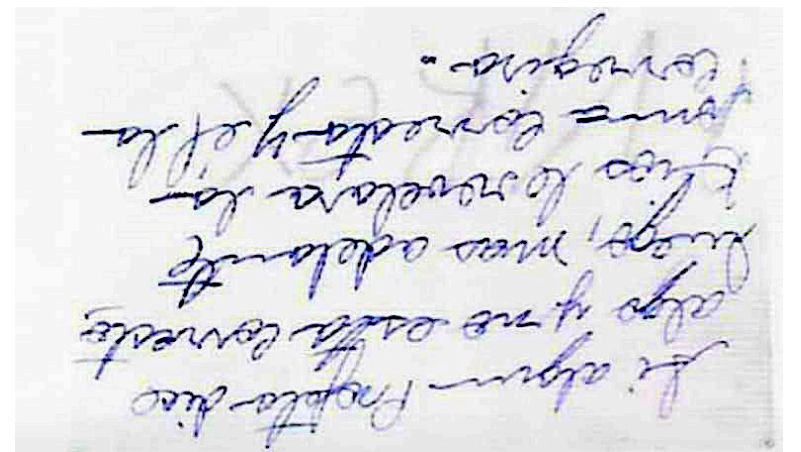 Si algun Profeta dice
algo y no esta correcto,
luego, mas adelante
Dios le revelara la
forma correcta y el la
corregira..